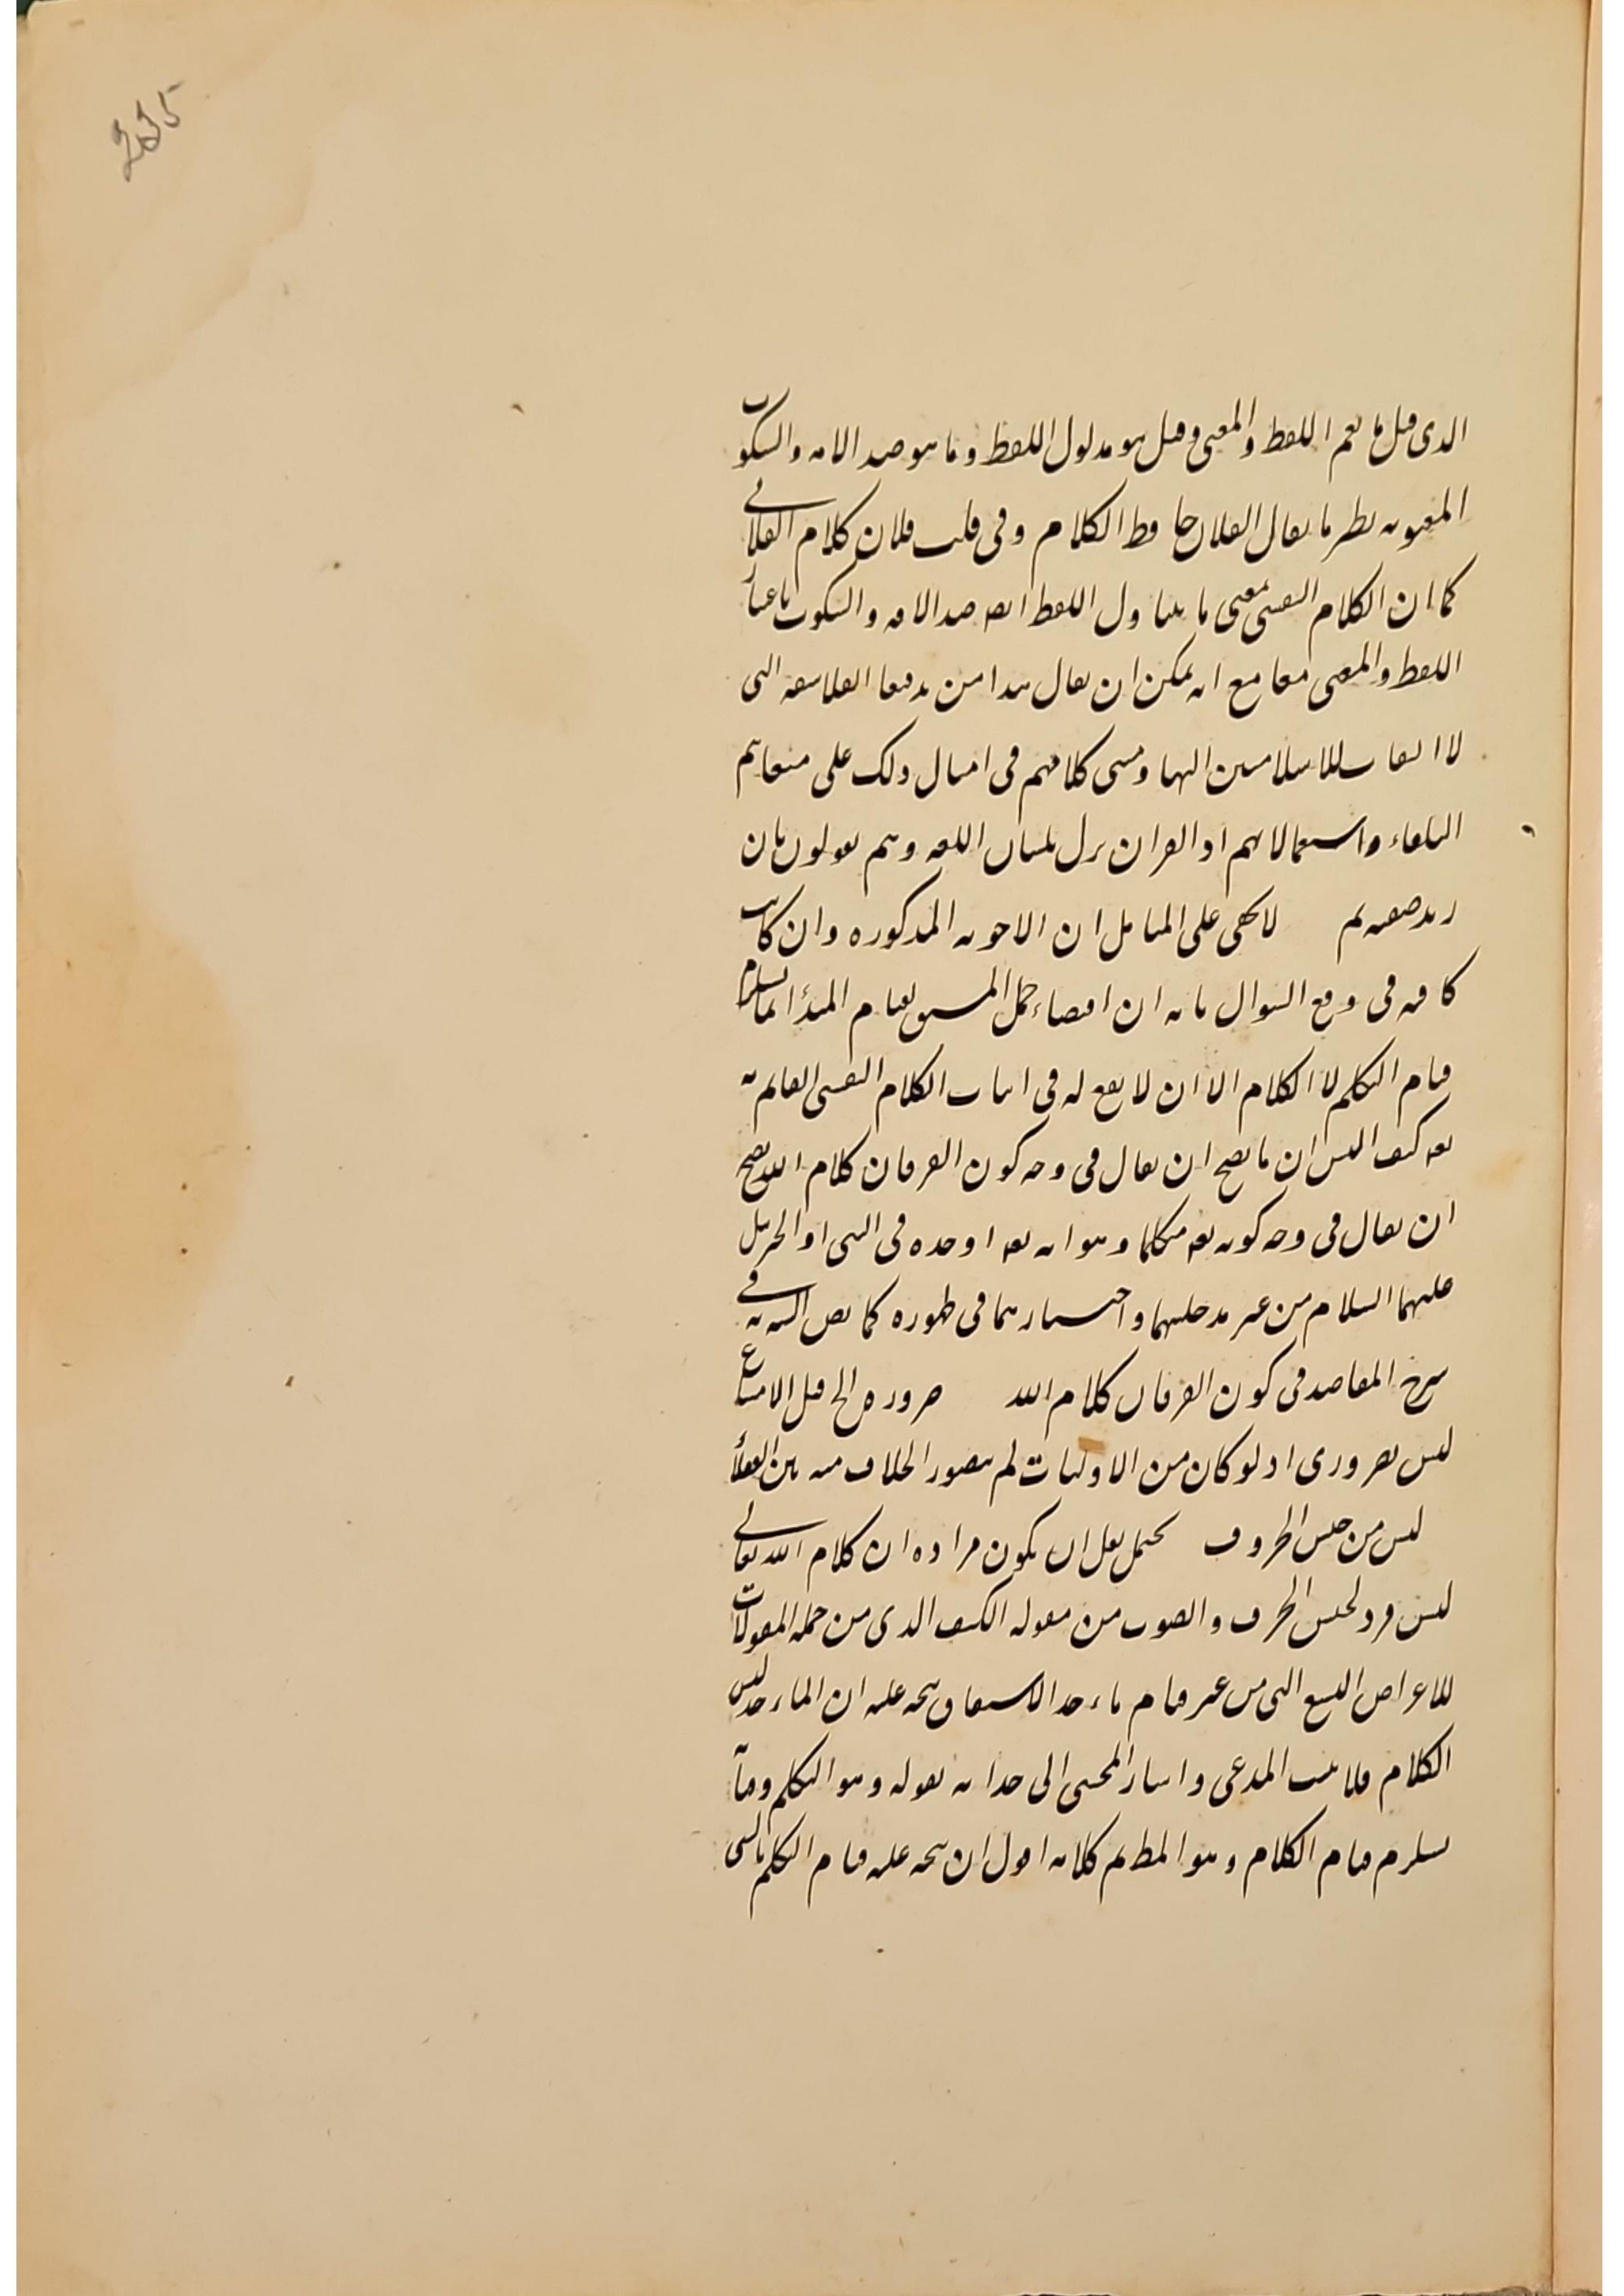 235
الذى قيل ما يعم اللفظ والمعنى وقيل هو مدلول اللفظ وما هو ضد الافه والسكوت
المعنويه نظير ما يقال الفلان حافظ الكلام وفى قلب فلان كلام الفلانى
كما ان الكلام النفسى بمعنى ما يتناول اللفظ ايضه ضد الافه والسكوت باعتبار
اللفظ والمعنى معا مع انه يمكن ان يقال هذا من تدقيقا الفلاسفه التى
لا التفات للاسلاميين اليها ومبنى كلامهم فى امثال ذلك على متفاهم
البلغاء واستعمالاتهم اذ القران نزل بلسان اللغه وهم يقولون بان
زيد صفه لا يخفى على المتامل ان الاجوبه المذكوره وان كانت
كافيه فى دفع السوال بانه ان اقتضاء حمل المشتق لقيام المبدأ انما يستلزم
قيام التكلم لا الكلام الا ان لا يقع له فى اثبات الكلام النفسى القايم به
تعه كيف اليس ان ما يصح ان يقال فى وجه كون الفرقان كلام الله يصح
ان يقال فى وجه كونه تعه متكلما وهو انه تعه اوجده فى النبى او الجبريل
عليهما السلام من غير مدخليهما واختيارهما فى ظهوره كما نص اليه فى
شرح المقاصد فى كون الفرقان كلام الله ضروره الخ قيل الامتناع
ليس بضرورى اذ لو كان من الاوليات لم يتصور الخلاف فيه بين العقلاء
ليس من جنس الحروف يحتمل نقل ان يكون مراده ان كلام الله تعالى
ليس فرد لجنس الحرف والصوت من مقوله الكيف الذى من جمله المقولات
للاعراض التسع التى من غير قيام ماء خذ الاشتقاق يتجه عليه ان الماء خذ ليس
الكلام فلا يثبت المدعى واشار المحشى الى جوابه بقوله وهو التكلم وقيامه
يستلزم قيام الكلام وهو المط تم كلامه اقول ان يتجه عليه قيام التكلم بالشى